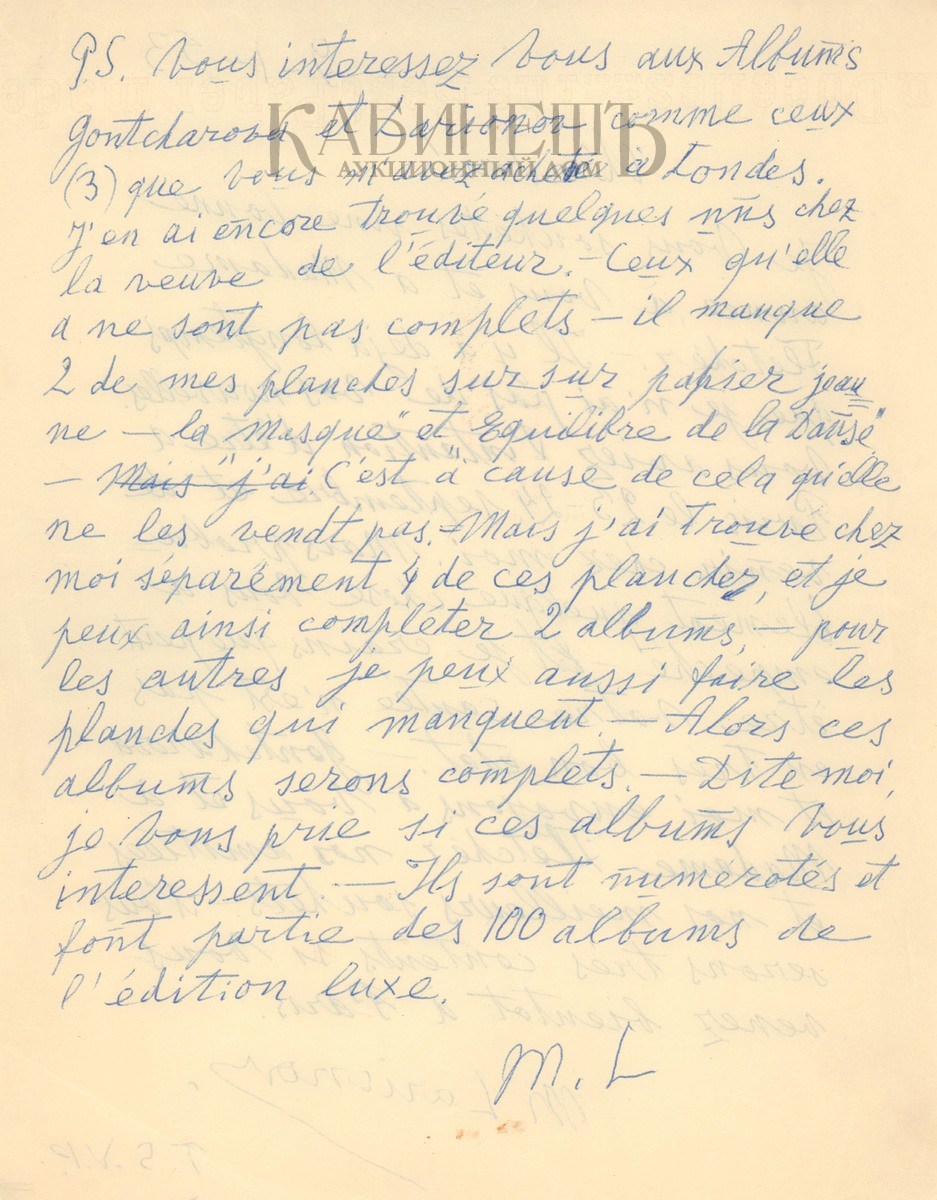 P.S. Vous interessez vous aux Albums
КАБИНЕТЪ
Gontcharova et Larionov comme ceux
АУКЦИОННЫЙ ДОМ
(3) que vous m'avez acheté à Londes.
J'en ai encore trouvé quelques uns chez
la veuve de l'éditeur. – Ceux qu'elle
a ne sont pas complets – il manque
2 de mes planches sur sur papier jeau
ne – la Masque" et Equilibre de la Danse"
– Mais "j'ai C'est à cause de cela qu'elle
ne les vendt pas. – Mais j'ai trouvé chez
moi séparément 4 de ces planchez, et je
peux ainsi compléter 2 albums, – pour
les autres je peux aussi faire les
planches qui manquent. – Alors ces
albums serons complets. – Dite moi,
je vous prie si ces albums vous
interessent – Ils sont numerotés et
font partie des 100 albums de
l'édition luxe.
M. L